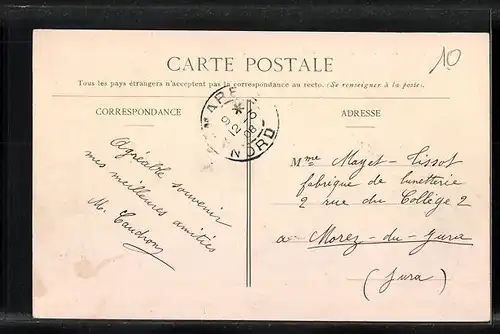 10
CARTE POSTALE
Tous les pays étrangers n'acceptent pas la correspondance au recto. (Se renseigner à la poste).
CORRESPONDANCE
ADRESSE
NORD
Agréable souvenir
mes meilleures amitiés
M. Caudron
Mme Mayet-Tissot
fabrique de lunetterie
2 rue du Collège 2
a Morez-du-Jura
(Jura)